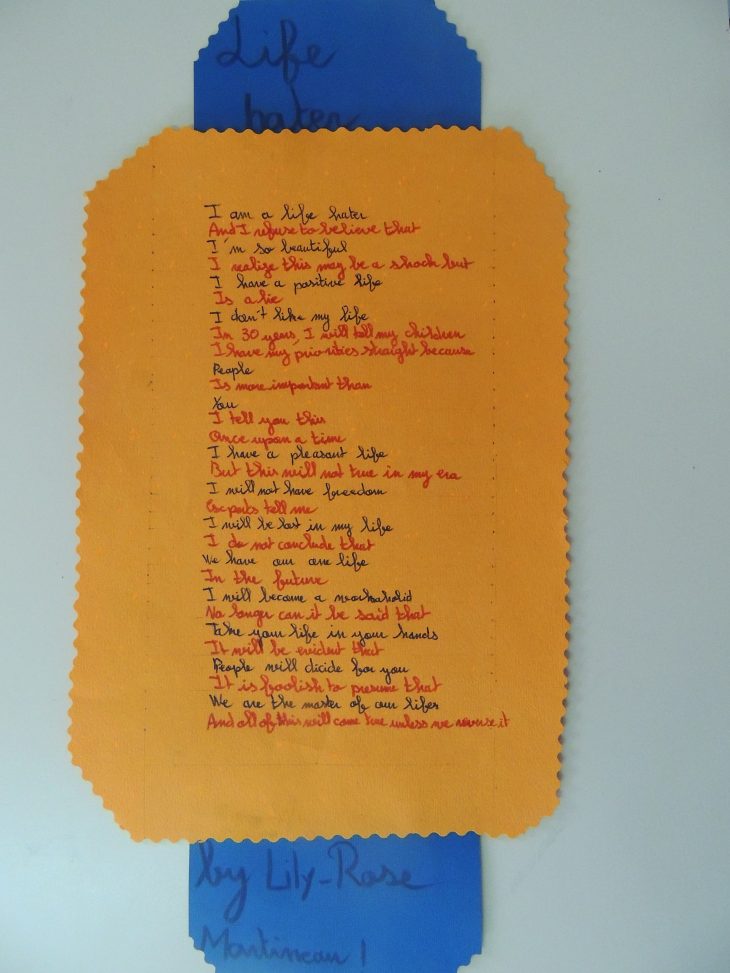 Life
hater
I am a life hater
And I refuse to believe that
I'm so beautiful
I realize this may be a shock but
I have a positive life
Is a lie
I don't like my life
In 30 years, I will tell my children
I have my priorities straight because
People
Is more important than
You
I tell you this
Once upon a time
I have a pleasant life
But this will not true in my era
I will not have freedom
Experts tell me
I will be lost in my life
I do not conclude that
We have our one life
In the future
I will become a workaholid
No longer can it be said that
Take your life in your hands
It will be evident that
People will dicide for you
It is foolish to presume that
We are the master of our lifes
And all of this will come true unless we reverse it
by Lily-Rose
Martineau